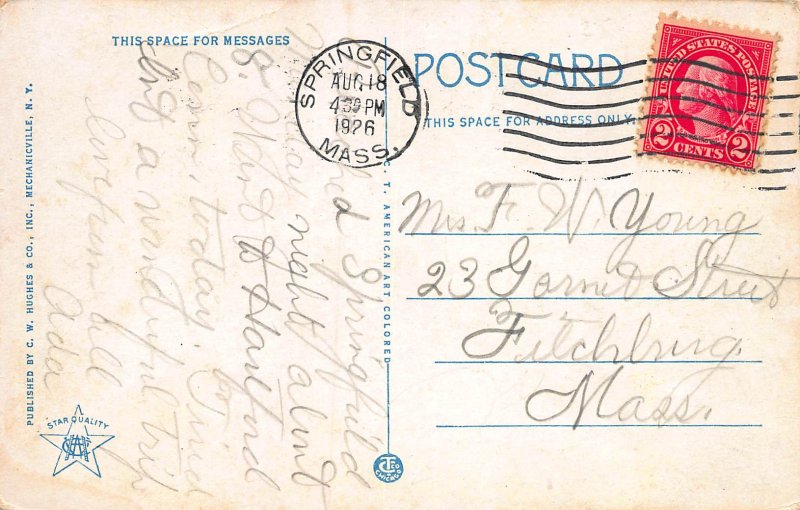 THIS SPACE FOR MESSAGES
Springfield
Monday night about
8. Went to Hartford
Conn. today. Tired
but a wonderful trip
Love from all
Ada
PUBLISHED BY C. W. HUGHES & CO., INC., MECHANICVILLE, N. Y.
STAR QUALITY
SPRINGFIELD
AUG 18
4 30 PM
1926
MASS.
C. T. AMERICAN ART COLORED
CHICAGO
POST CARD
THIS SPACE FOR ADDRESS ONLY.
UNITED STATES POSTAGE
2 CENTS 2
Mrs. F. W. Young
23 Garnet Street
Fitchburg.
Mass.